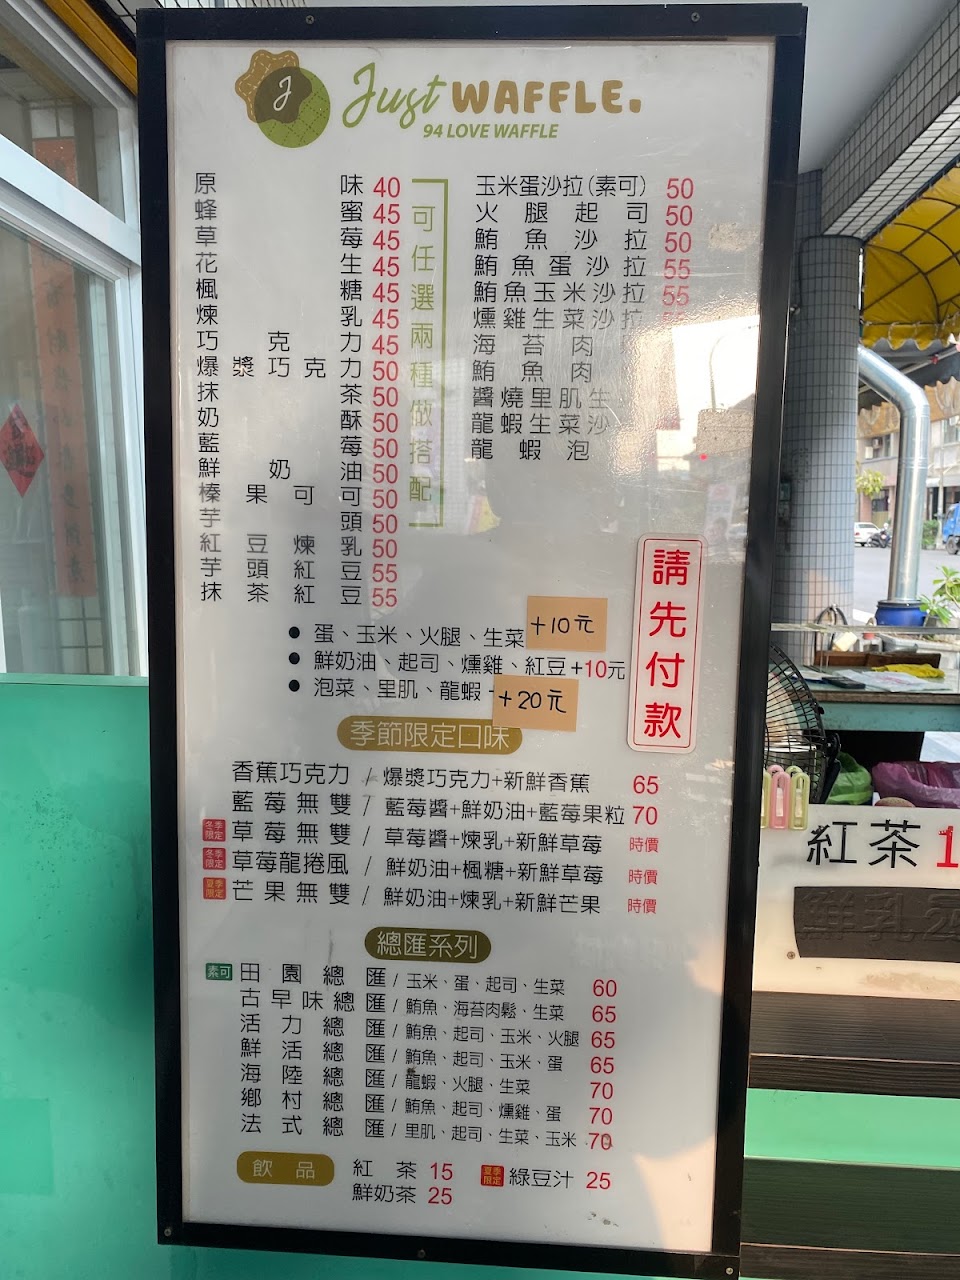 J
Just WAFFLE.
94 LOVE WAFFLE
原味 40
蜂蜜 45
草莓 45
花生 45
楓糖 45
煉乳 45
巧克力 45
爆漿巧克力 50
抹茶 50
奶酥 50
藍莓 50
鮮奶油 50
榛果可可 50
芋頭 50
紅豆煉乳 50
芋頭紅豆 55
抹茶紅豆 55
可任選兩種做搭配
玉米蛋沙拉(素可) 50
火腿起司 50
鮪魚沙拉 50
鮪魚蛋沙拉 55
鮪魚玉米沙拉 55
燻雞生菜沙拉
海苔肉
鮪魚肉
醬燒里肌生
龍蝦生菜沙
龍蝦泡
● 蛋、玉米、火腿、生菜 +10元
● 鮮奶油、起司、燻雞、紅豆+10元
● 泡菜、里肌、龍蝦 +20元
請先付款
季節限定口味
香蕉巧克力 / 爆漿巧克力+新鮮香蕉 65
藍莓無雙 / 藍莓醬+鮮奶油+藍莓果粒 70
冬季限定 草莓無雙 / 草莓醬+煉乳+新鮮草莓 時價
冬季限定 草莓龍捲風 / 鮮奶油+楓糖+新鮮草莓 時價
夏季限定 芒果無雙 / 鮮奶油+煉乳+新鮮芒果 時價
總匯系列
素可 田園總匯 / 玉米、蛋、起司、生菜 60
古早味總匯 / 鮪魚、海苔肉鬆、生菜 65
活力總匯 / 鮪魚、起司、玉米、火腿 65
鮮活總匯 / 鮪魚、起司、玉米、蛋 65
海陸總匯 / 龍蝦、火腿、生菜 70
鄉村總匯 / 鮪魚、起司、燻雞、蛋 70
法式總匯 / 里肌、起司、生菜、玉米 70
飲品
紅茶 15
鮮奶茶 25
夏季限定 綠豆汁 25
紅茶 1
鮮乳